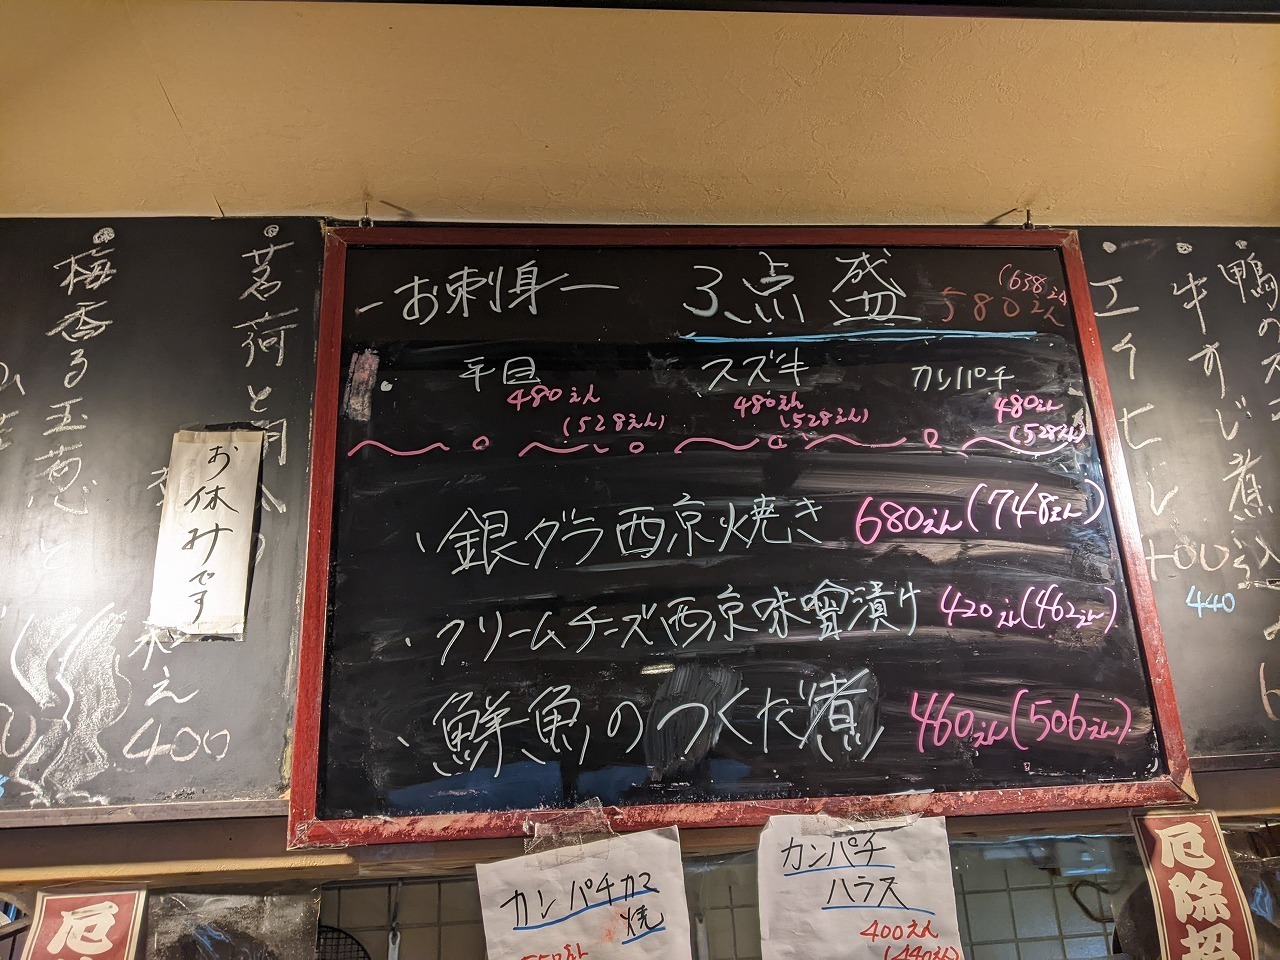 お刺身 3点盛 580えん (638えん)
平目 スズキ カンパチ
480えん 480えん 480えん
(528えん) (528えん) (528えん)
銀ダラ西京焼き 680えん(748えん)
クリームチーズ西京味噌漬け 420えん(462えん)
鮮魚のつくだ煮 460えん(506えん)
茗荷と
和え
400
お休みです
梅香る玉葱と
エイヒレ
400
440
牛すじ煮込
鴨の
カンパチカマ
焼
550えん
カンパチ
ハラス
400えん
(440えん)
厄
厄除招